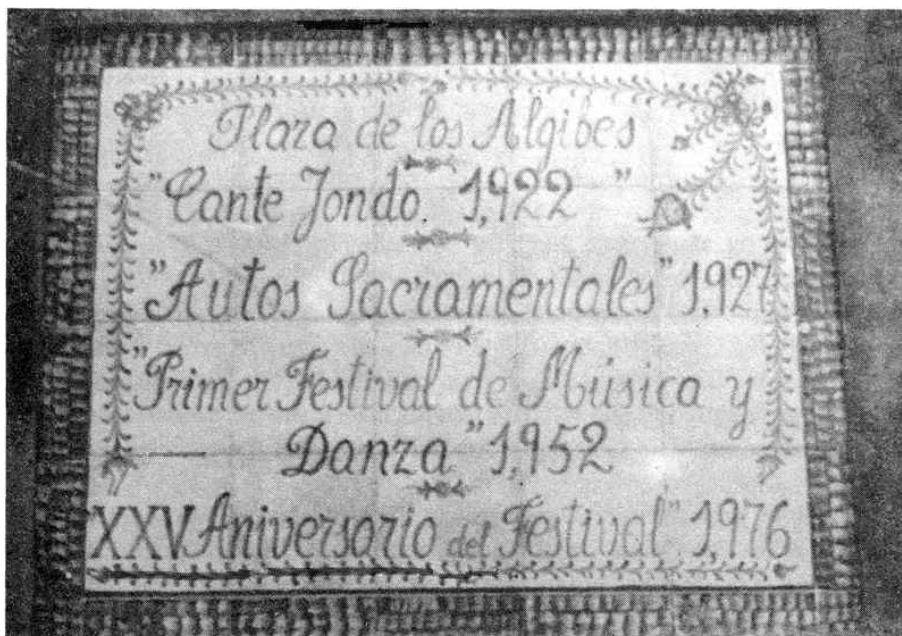 Plaza de los Algibes
"Cante Jondo" 1,922 "
"Autos Sacramentales" 1,927
"Primer Festival de Música y
Danza" 1,952
XXV Aniversario del Festival" 1,976